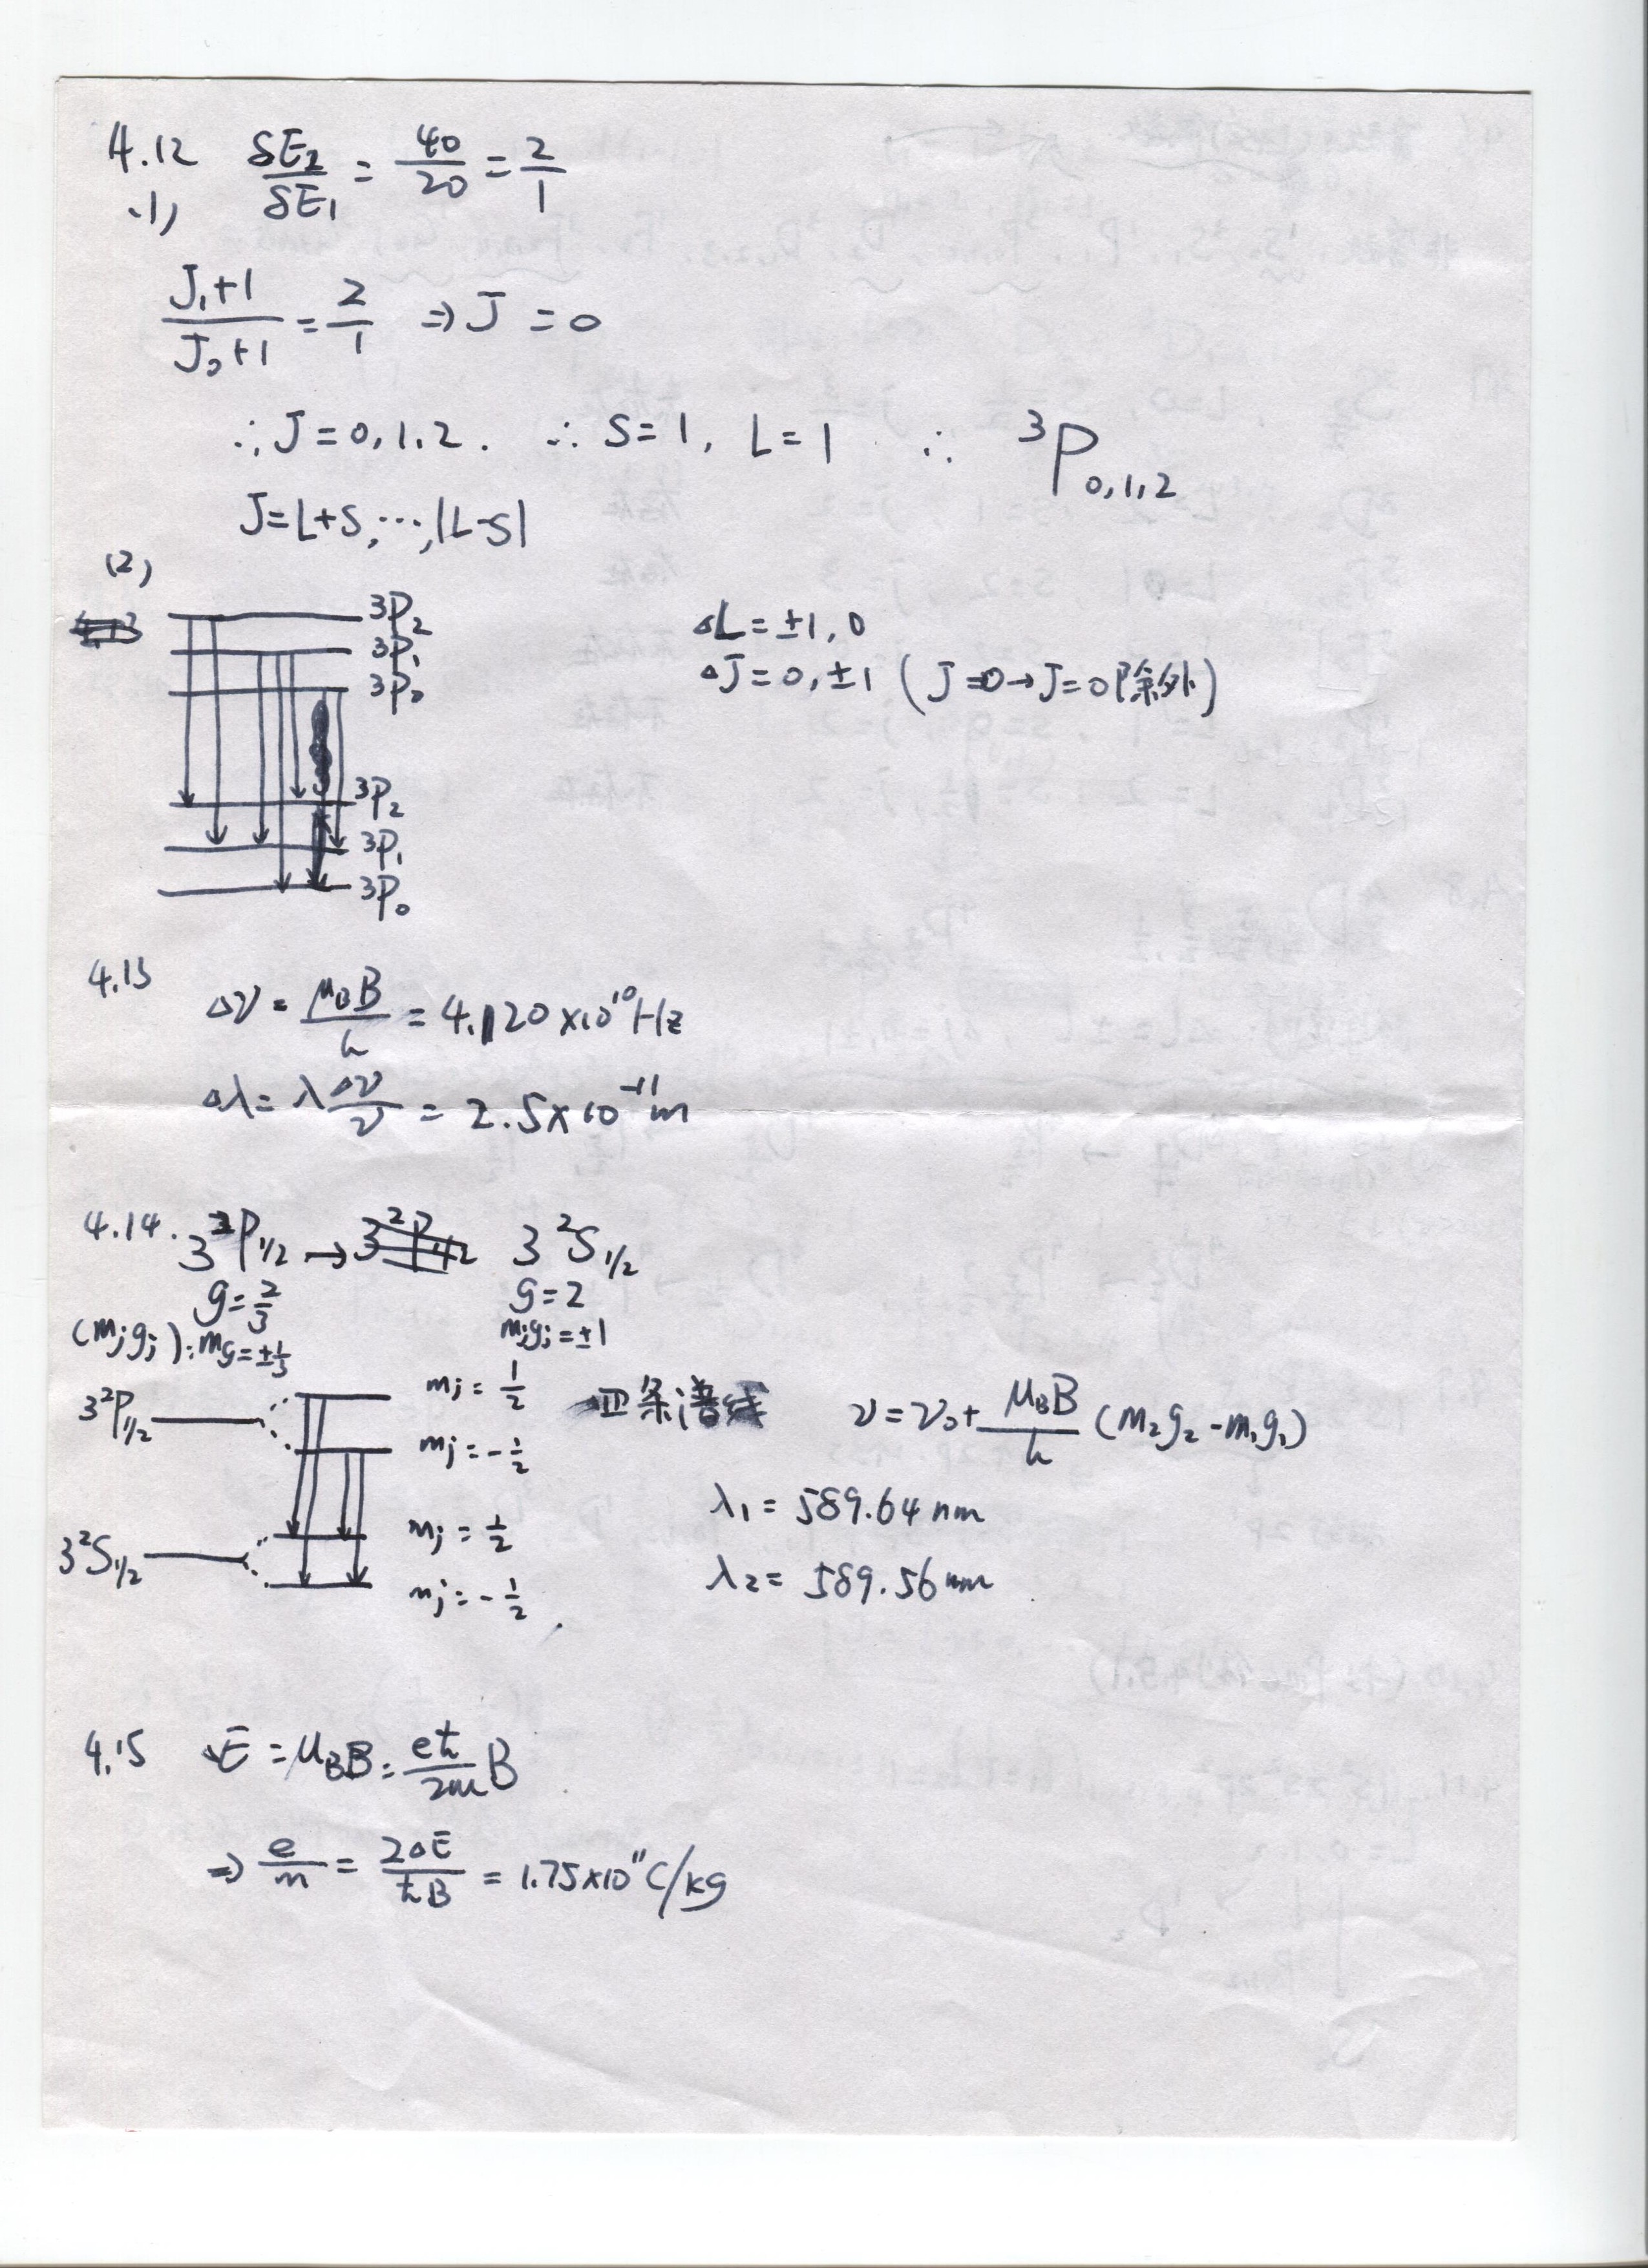 4.12 δE₂/δE₁ = 40/20 = 2/1
(1)
J₁+1/J₀+1 = 2/1 ⇒ J = 0
∴ J = 0, 1, 2. ∴ S = 1, L = 1 ∴ ³P₀,₁,₂
J = L+S, ⋯, |L-S|
(2)
³P₂
³P₁
³P₀
³P₂
³P₁
³P₀
ΔL = ±1, 0
ΔJ = 0, ±1 (J=0→J=0除外)
4.13
Δν = μ_B B/h = 4.120×10¹⁰Hz
Δλ = λ Δν/ν = 2.5×10⁻¹¹m
4.14. 3²P₁/₂ → 3²S₁/₂
g = 2/3 g = 2
(mⱼgⱼ): mg = ±1/3 mⱼgⱼ = ±1
3²P₁/₂ mⱼ = 1/2
mⱼ = -1/2
3²S₁/₂ mⱼ = 1/2
mⱼ = -1/2
四条谱线 ν = ν₀ + μ_B B/h (m₂g₂ - m₁g₁)
λ₁ = 589.64 nm
λ₂ = 589.56 nm
4.15 E = μ_B B = eħ/2m B
⇒ e/m = 2ΔE/ħB = 1.75×10¹¹ C/kg